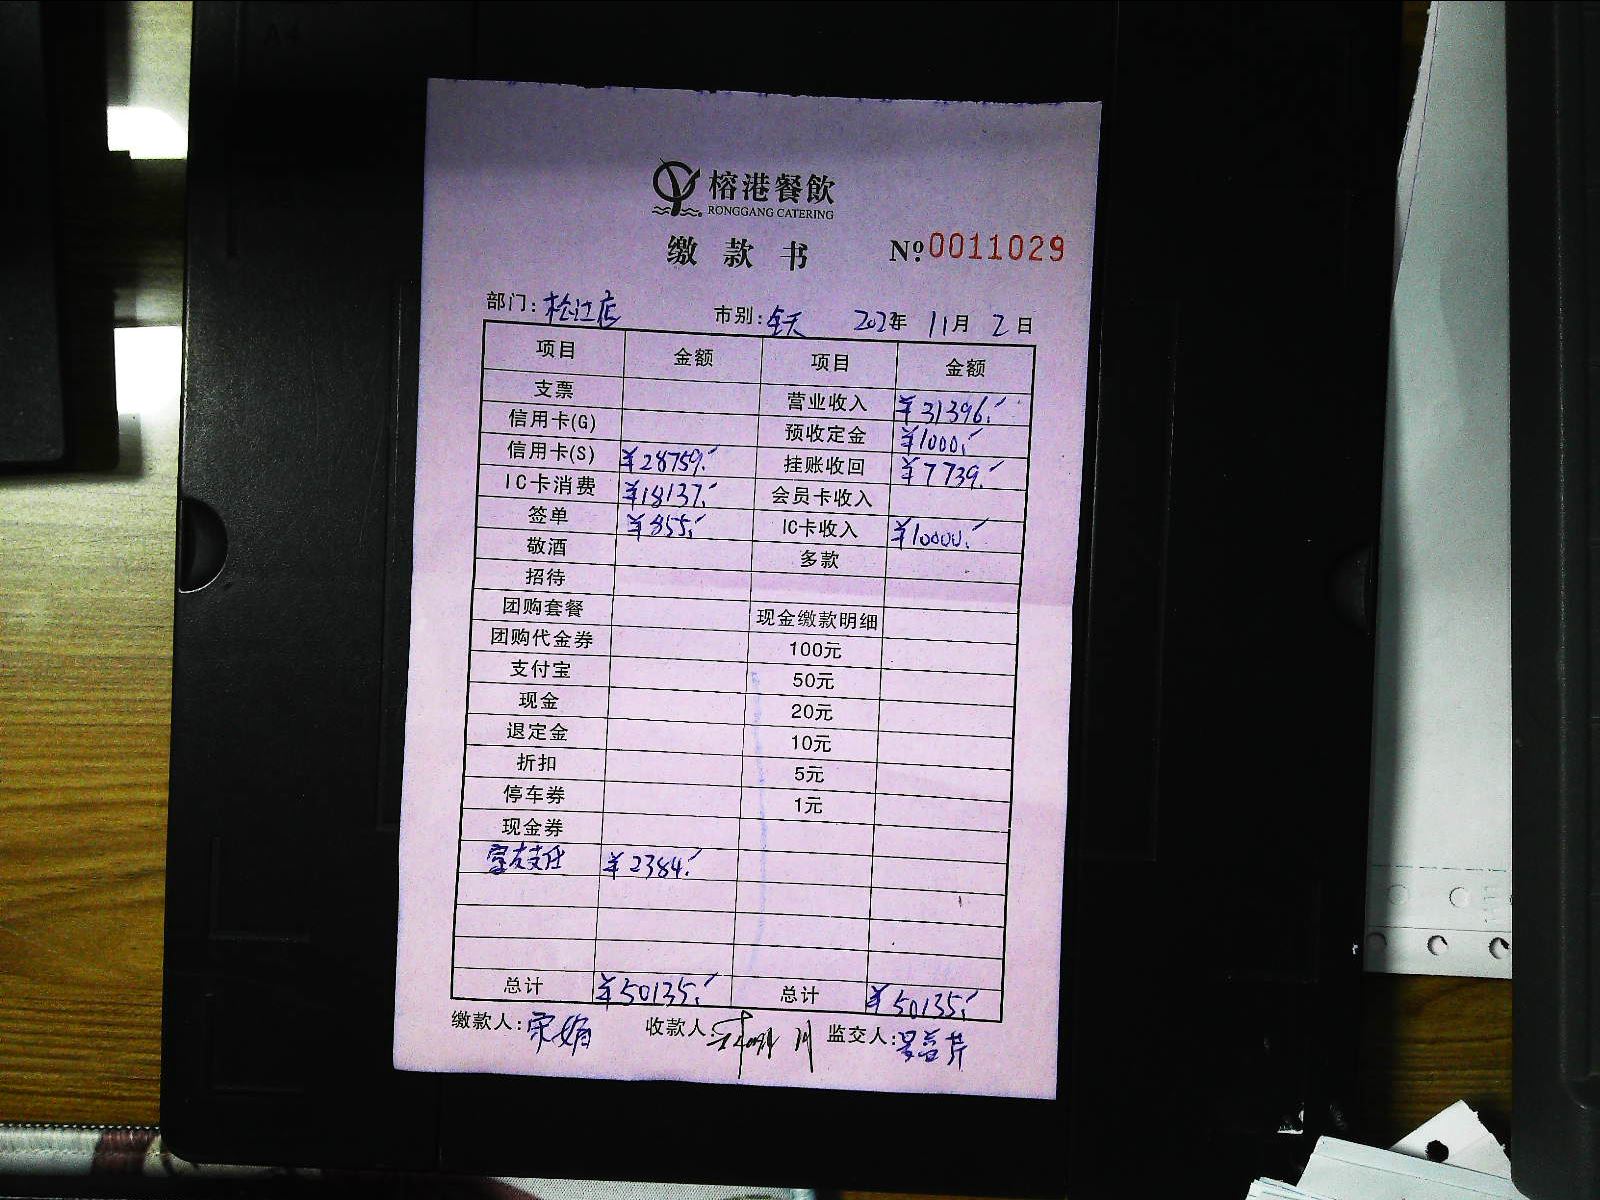 榕港餐飲
RONGGANG CATERING
缴款书 №:0011029
部门:松江店 市别:全天 2023年 11月 2日
项目 金额 项目 金额
支票 营业收入 ¥31396.
信用卡(G) 预收定金 ¥1000.
信用卡(S) ¥28759. 挂账收回 ¥7739.
IC卡消费 ¥18137. 会员卡收入
签单 ¥855. IC卡收入 ¥10000.
敬酒 多款
招待
团购套餐 现金缴款明细
团购代金券 100元
支付宝 50元
现金 20元
退定金 10元
折扣 5元
停车券 1元
现金券
富友支付 ¥2384.
总计 ¥50135. 总计 ¥50135.
缴款人:宋娟 收款人: 监交人: